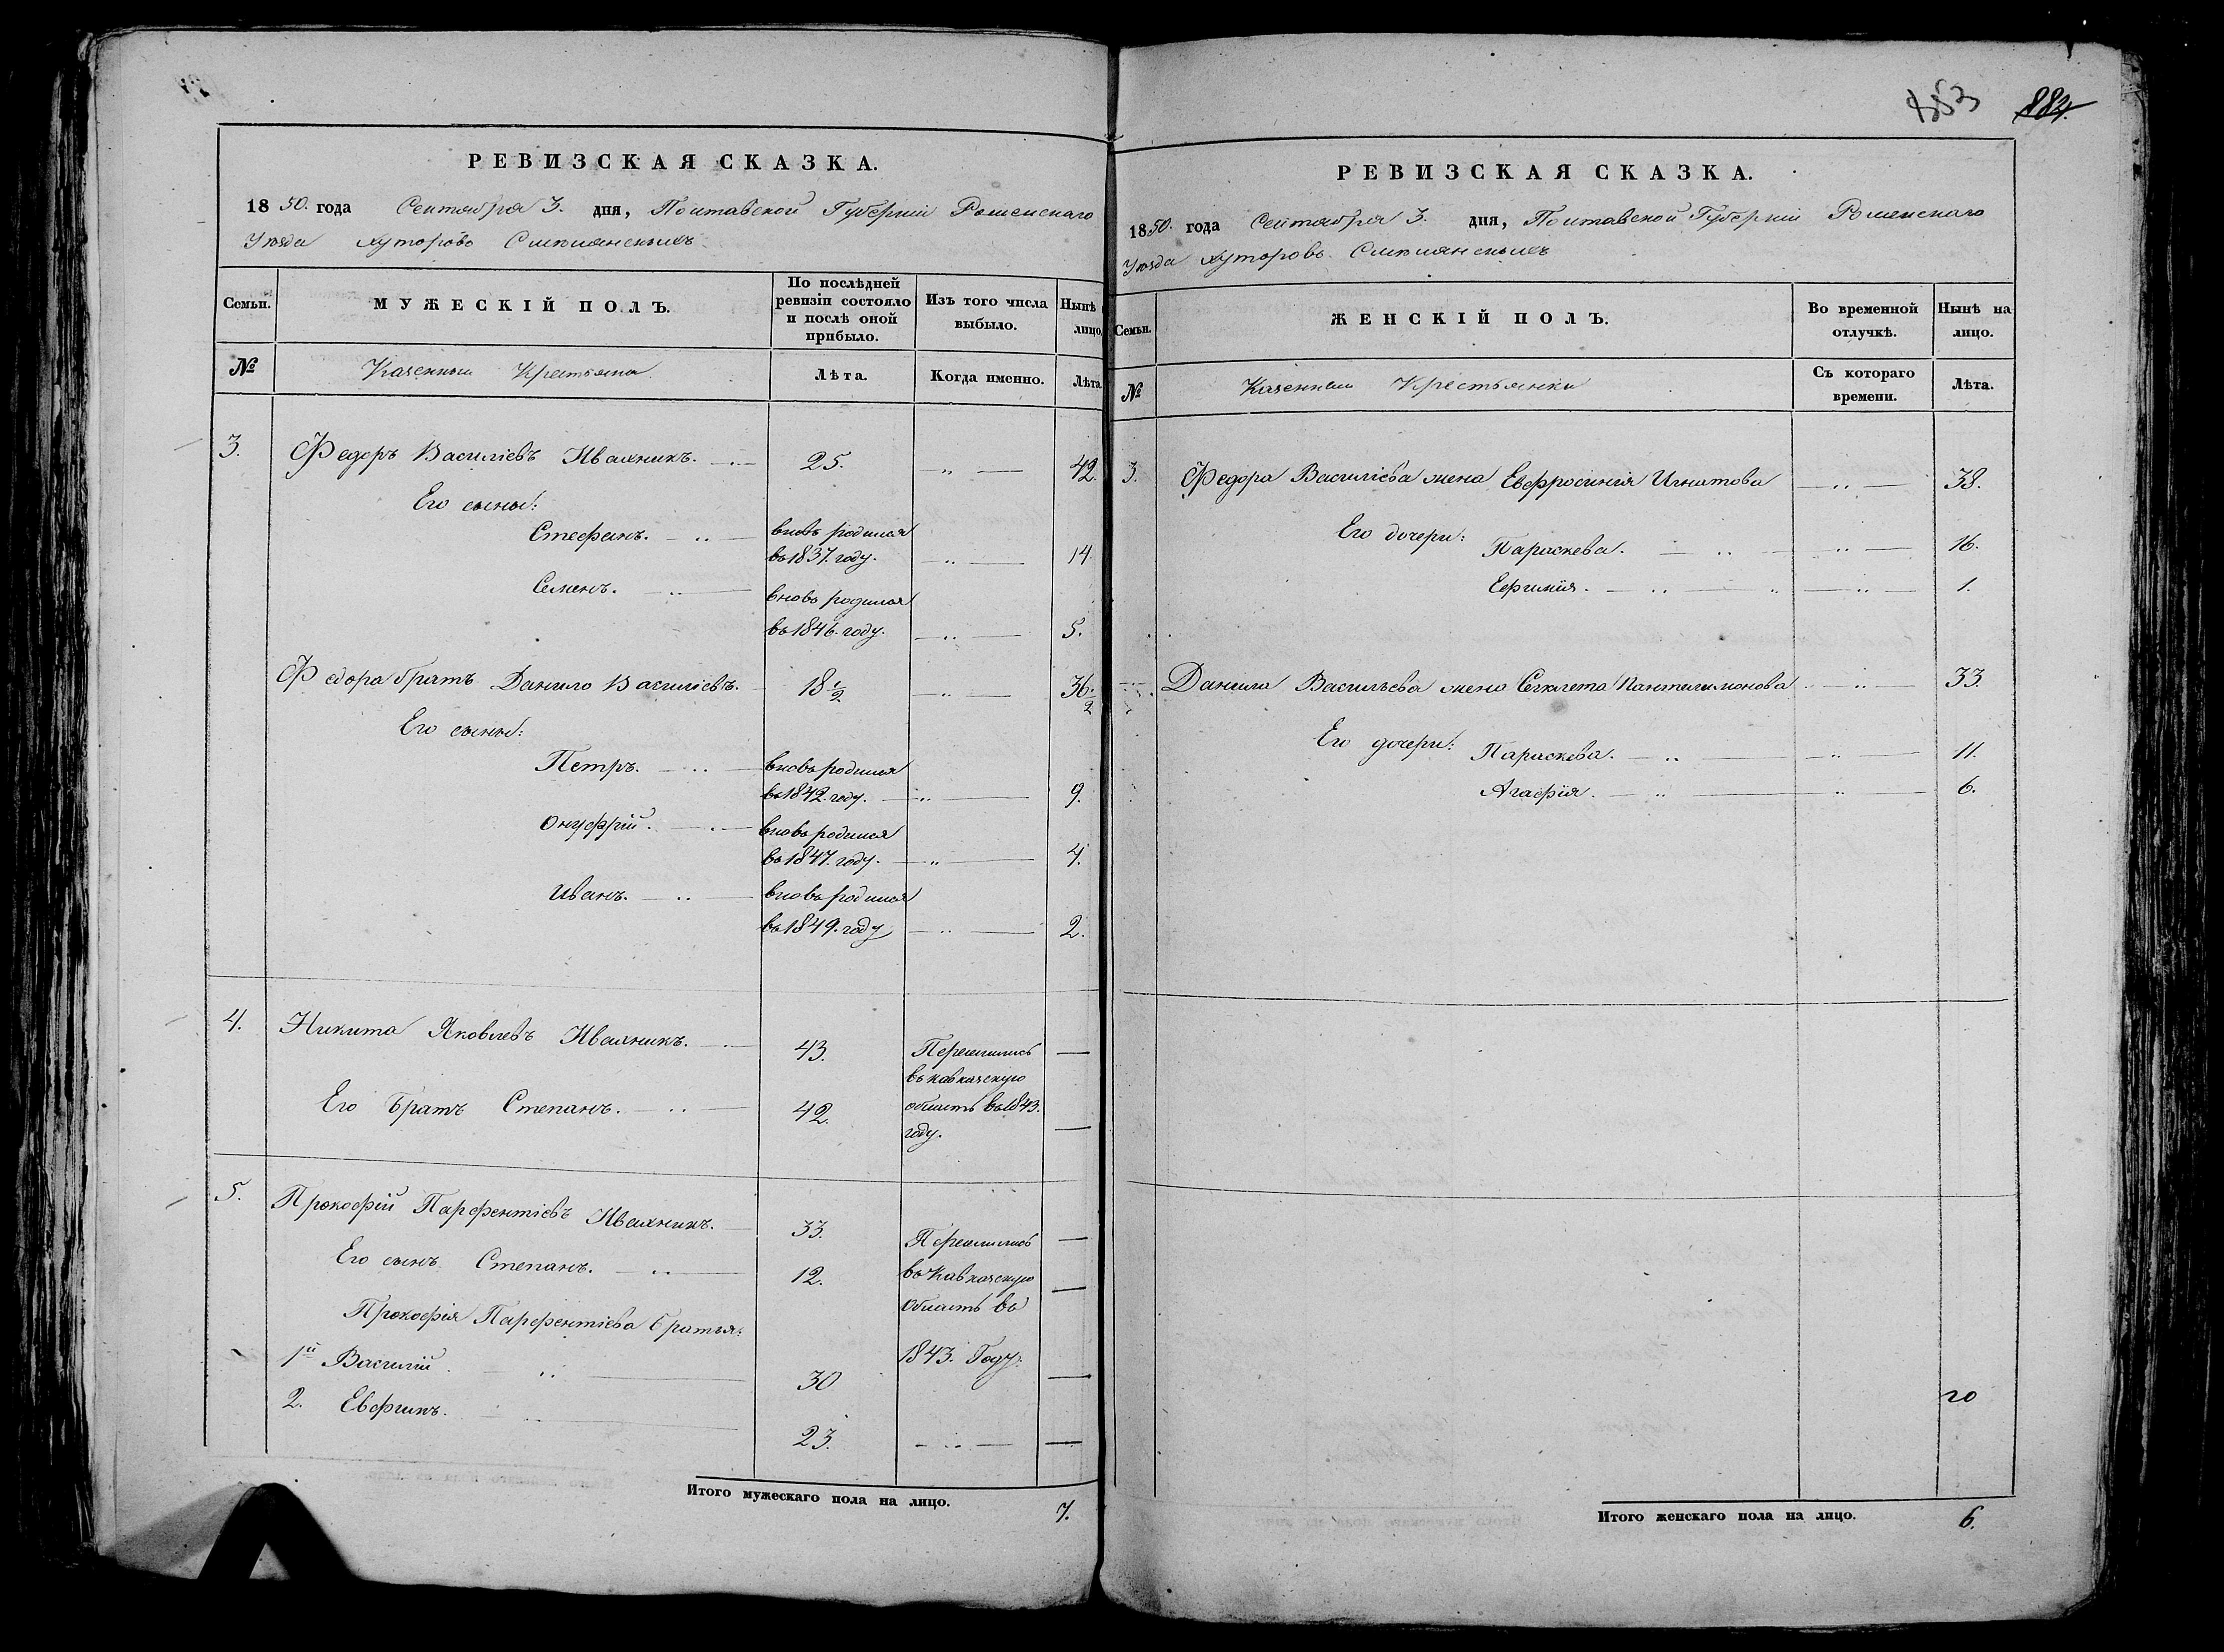 РЕВИЗСКАЯ СКАЗКА.
1850. года Сентября 3. дня, Полтавской Губернiи Роменскаго
Уезда Хуторовъ
Семьи.
МУЖЕСКIЙ ПОЛЪ.
По послѣдней ревизiи состояло и послѣ оной прибыло.
Изъ того числа выбыло.
Нынѣ лицо.
№
Казенныи Крестьяна.
Лѣта.
Когда именно.
Лѣта
3. Федоръ Василiевъ Ивахникъ. 25. 42.
Его сыны:
Стефанъ. вновь родился
въ 1837. году. 14.
Семенъ. вновь родился
въ 1846. году. 5.
Федора братъ Данило Василiевъ. 18 1/2 36. 1/2
Его сыны:
Петръ. вновь родился
въ 1842. году. 9.
Онуфрiй. вновь родился
въ 1847. году. 4.
Иванъ. вновь родился
въ 1849. году 2.
4. Никита Яковлевъ Ивахникъ. 43. Переселились
въ Кавказскую
Его братъ Степанъ. 42. область въ 1843.
году.
5. Прокофiй Парфентiевъ Ивахникъ. 33. Переселились
Его сынъ Степанъ. 12. въ Кавказскую
Прокофiя Парфентiева братья: область въ
1й Василiй. 30 1843. Году.
2. Евфимъ. 23.
Итого мужескаго пола на лицо. 7.
853 884.
РЕВИЗСКАЯ СКАЗКА.
1850. года Сентября 3. дня, Полтавской Губернiи Роменскаго
Уезда Хуторовъ
Семьи.
ЖЕНСКIЙ ПОЛЪ.
Во временной отлучкѣ.
Нынѣ на лицо.
№
Казенныи Крестьянки
Съ котораго времени.
Лѣта.
3. Федора Василiева жена Евфросинiя Игнатова 38.
Его дочери:
Параскева. 16.
Ефимiя. 1.
Данила Васильева жена Секлета Пантелимонова 33.
Его дочери: Параскева. 11.
Агафiя. 6.
20
Итого женскаго пола на лицо. 6.